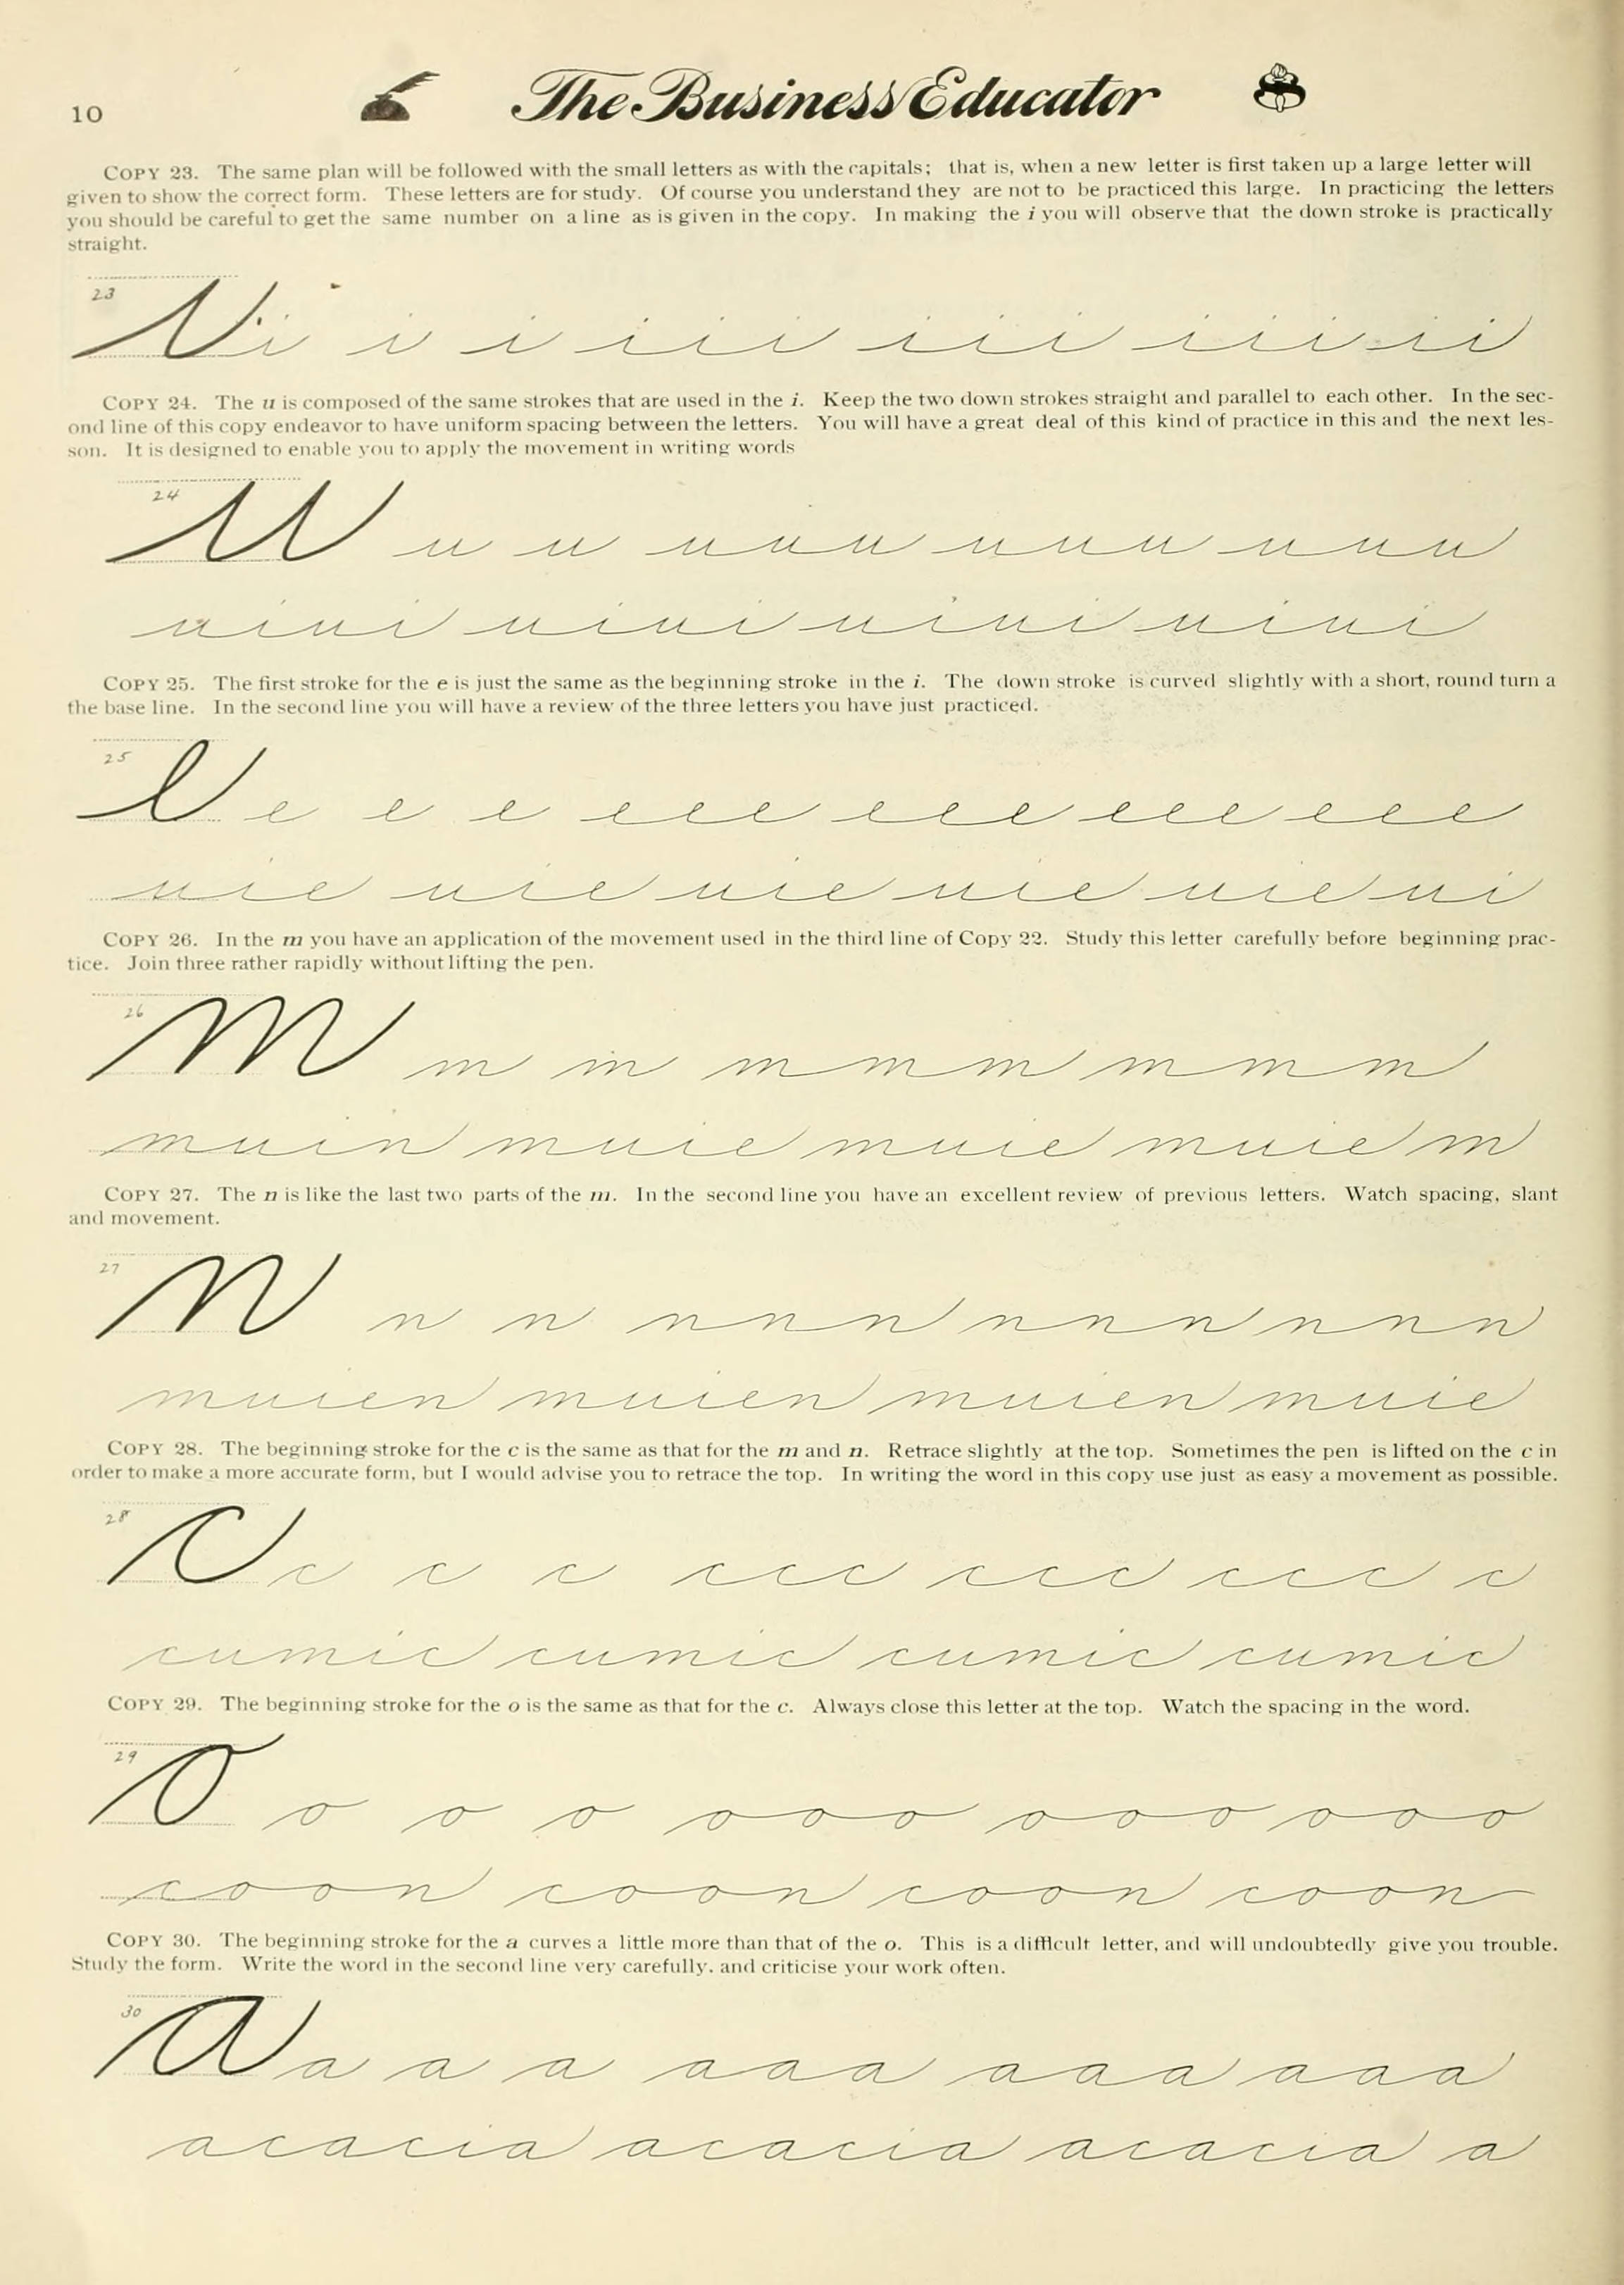 10
The Business Educator
COPY 23. The same plan will be followed with the small letters as with the capitals; that is, when a new letter is first taken up a large letter will
given to show the correct form. These letters are for study. Of course you understand they are not to be practiced this large. In practicing the letters
you should be careful to get the same number on a line as is given in the copy. In making the i you will observe that the down stroke is practically
straight.
23
i i i i i i i i i i i i i i i
COPY 24. The u is composed of the same strokes that are used in the i. Keep the two down strokes straight and parallel to each other. In the sec-
ond line of this copy endeavor to have uniform spacing between the letters. You will have a great deal of this kind of practice in this and the next les-
son. It is designed to enable you to apply the movement in writing words
24
u u u uuu uuu uuu
uiui uiui uiui uiui
COPY 25. The first stroke for the e is just the same as the beginning stroke in the i. The down stroke is curved slightly with a short, round turn a
the base line. In the second line you will have a review of the three letters you have just practiced.
25
e e e e eee eee eee eee
uie uie uie uie uie ui
COPY 26. In the m you have an application of the movement used in the third line of Copy 22. Study this letter carefully before beginning prac-
tice. Join three rather rapidly without lifting the pen.
26
m m m mmm mmm
muin muie muie muie m
COPY 27. The n is like the last two parts of the m. In the second line you have an excellent review of previous letters. Watch spacing, slant
and movement.
27
n n n nnn nnn nnn
muien muien muien muie
COPY 28. The beginning stroke for the c is the same as that for the m and n. Retrace slightly at the top. Sometimes the pen is lifted on the c in
order to make a more accurate form, but I would advise you to retrace the top. In writing the word in this copy use just as easy a movement as possible.
28
c c c c ccc ccc ccc c
cumic cumic cumic cumic
COPY 29. The beginning stroke for the o is the same as that for the c. Always close this letter at the top. Watch the spacing in the word.
29
o o o o ooo ooo ooo
coon coon coon coon
COPY 30. The beginning stroke for the a curves a little more than that of the o. This is a difficult letter, and will undoubtedly give you trouble.
Study the form. Write the word in the second line very carefully. and criticise your work often.
30
a a a a aaa aaa aaa
acacia acacia acacia a